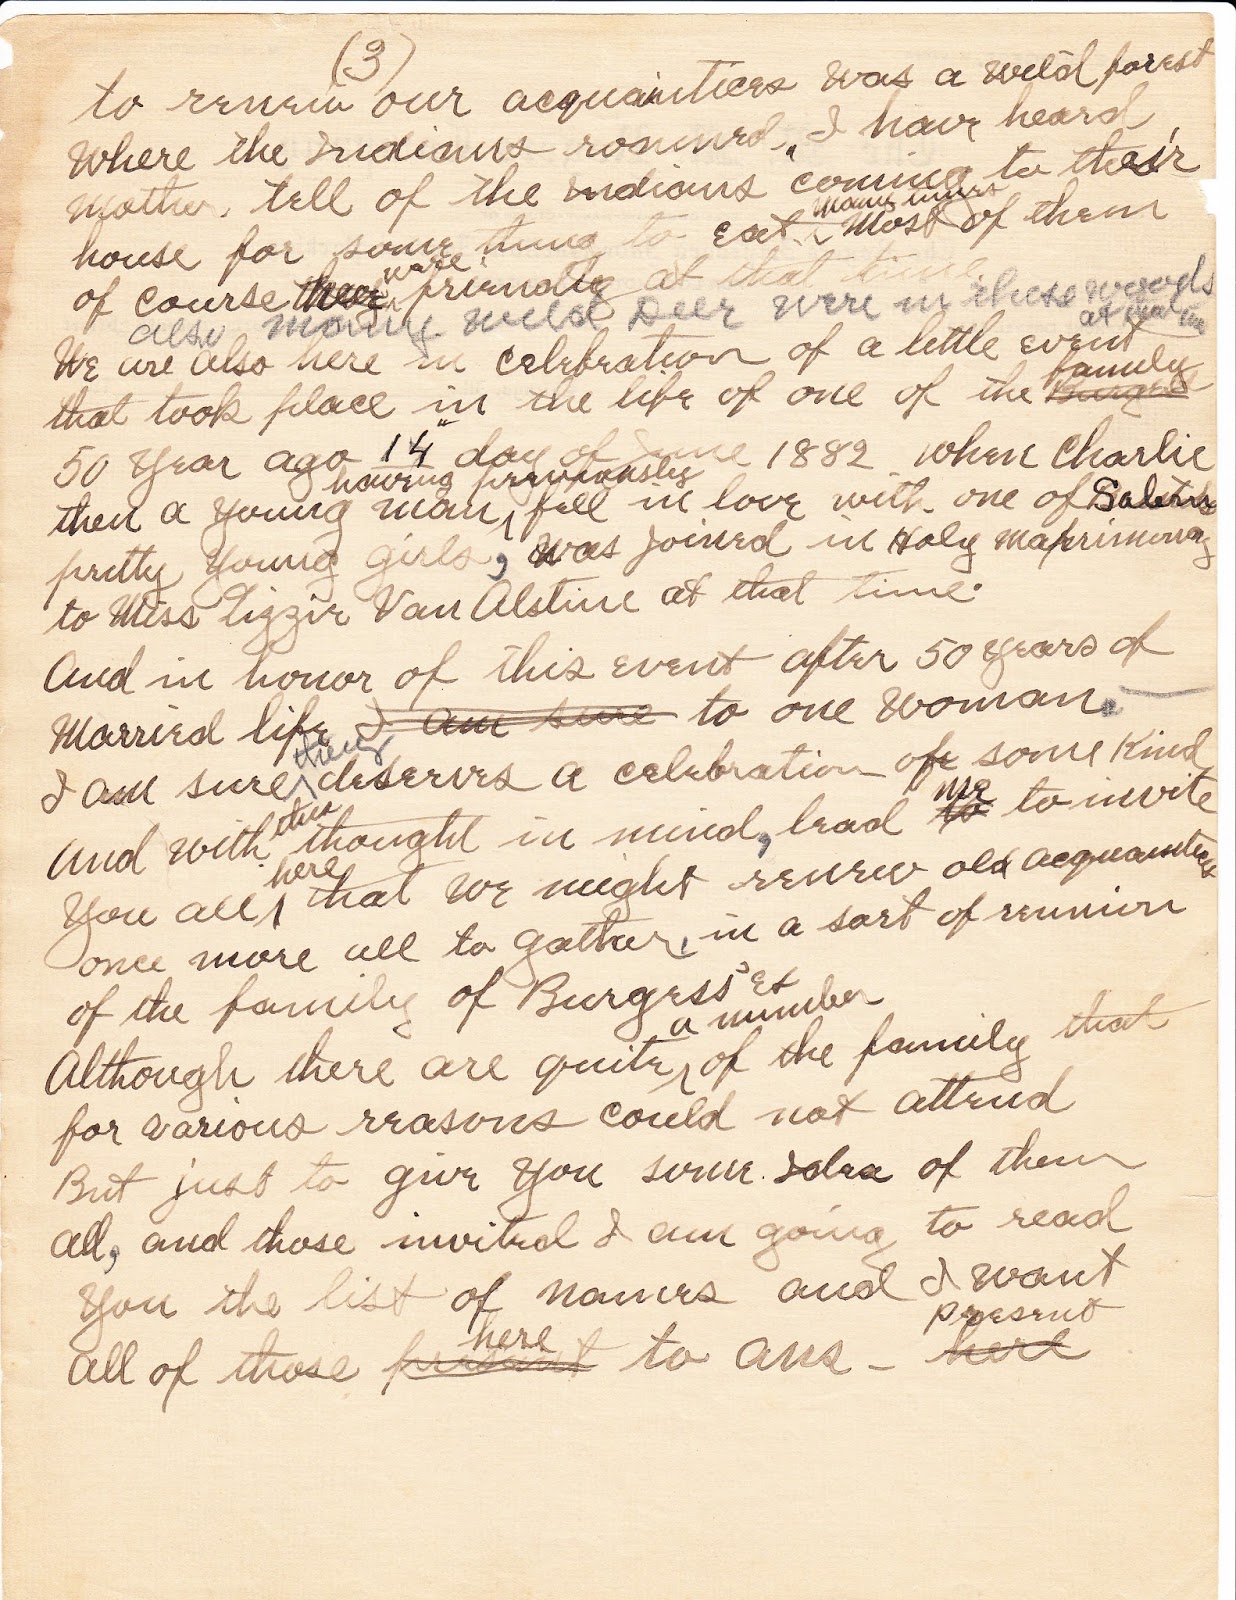 (3)
to renew our acquaintices was a wild forest
Where the Indians roamed. I have heard
Mother, tell of the Indians coming to their
house for some thing to eat. many times Most of them
of course were friendly at that time
also many wild Deer were in these woods at that time
We are also here in celebration of a little event
that took place in the life of one of the Burgess family
50 Year ago 14" day of June 1882 when Charlie
then a Young man, having previously fell in love with one of
pretty Young girls, was joined in Holy Matrimony
to Miss Lizzie Van Alstine at that time.
And in honor of this event after 50 Years of
Married life I am sure to one woman.
I am sure they deserves a celebration of some Kind
And with this thought in mind, lead to me to invite
You all here that we might renew old acquaintices
once more all to gather, in a sort of reunion
of the family of Burgess'es
Although there are quite a number of the family that
for various reasons could not attend
But just to give You some Idea of them
all, and those invited I am going to read
You the list of names and I want
all of those present here to ans - here present